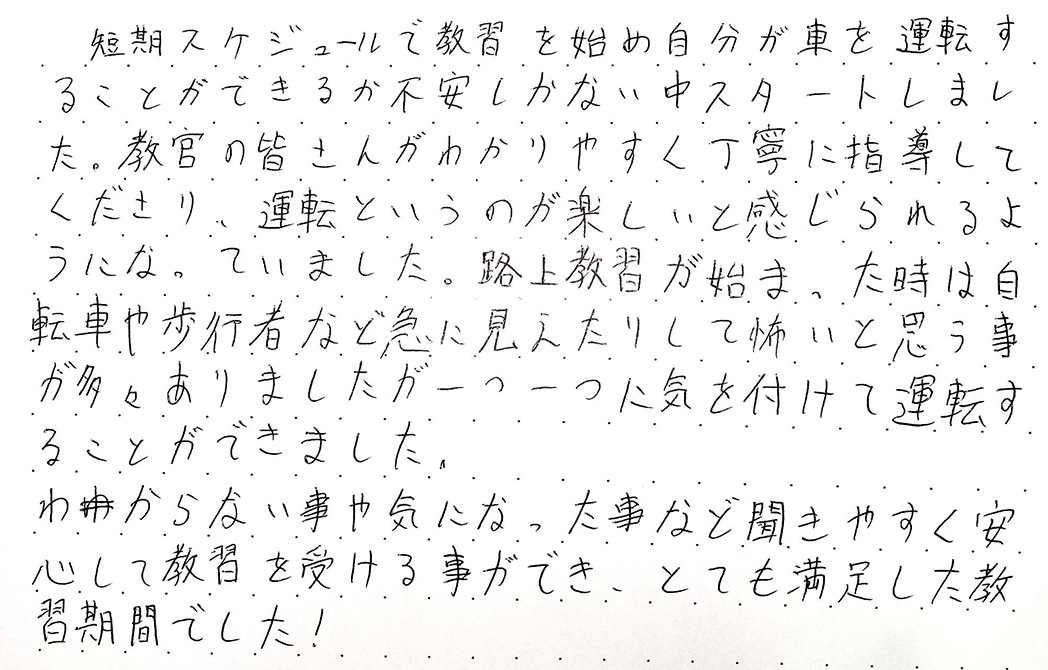 短期スケジュールで教習を始め自分が車を運転す
ることができるか不安しかない中スタートしまし
た。教官の皆さんがわかりやすく丁寧に指導して
くださり、運転というのが楽しいと感じられるよ
うになっていました。路上教習が始まった時は自
転車や歩行者など急に見えたりして怖いと思う事
が多々ありましたが一つ一つに気を付けて運転す
ることができました。
わからない事や気になった事など聞きやすく安
心して教習を受ける事ができ、とても満足した教
習期間でした!